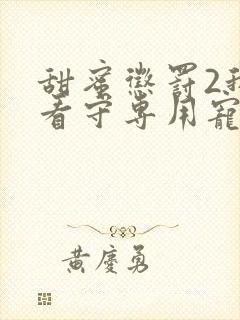 甜蜜懲罰2我
看守專用寵
黃慶勇